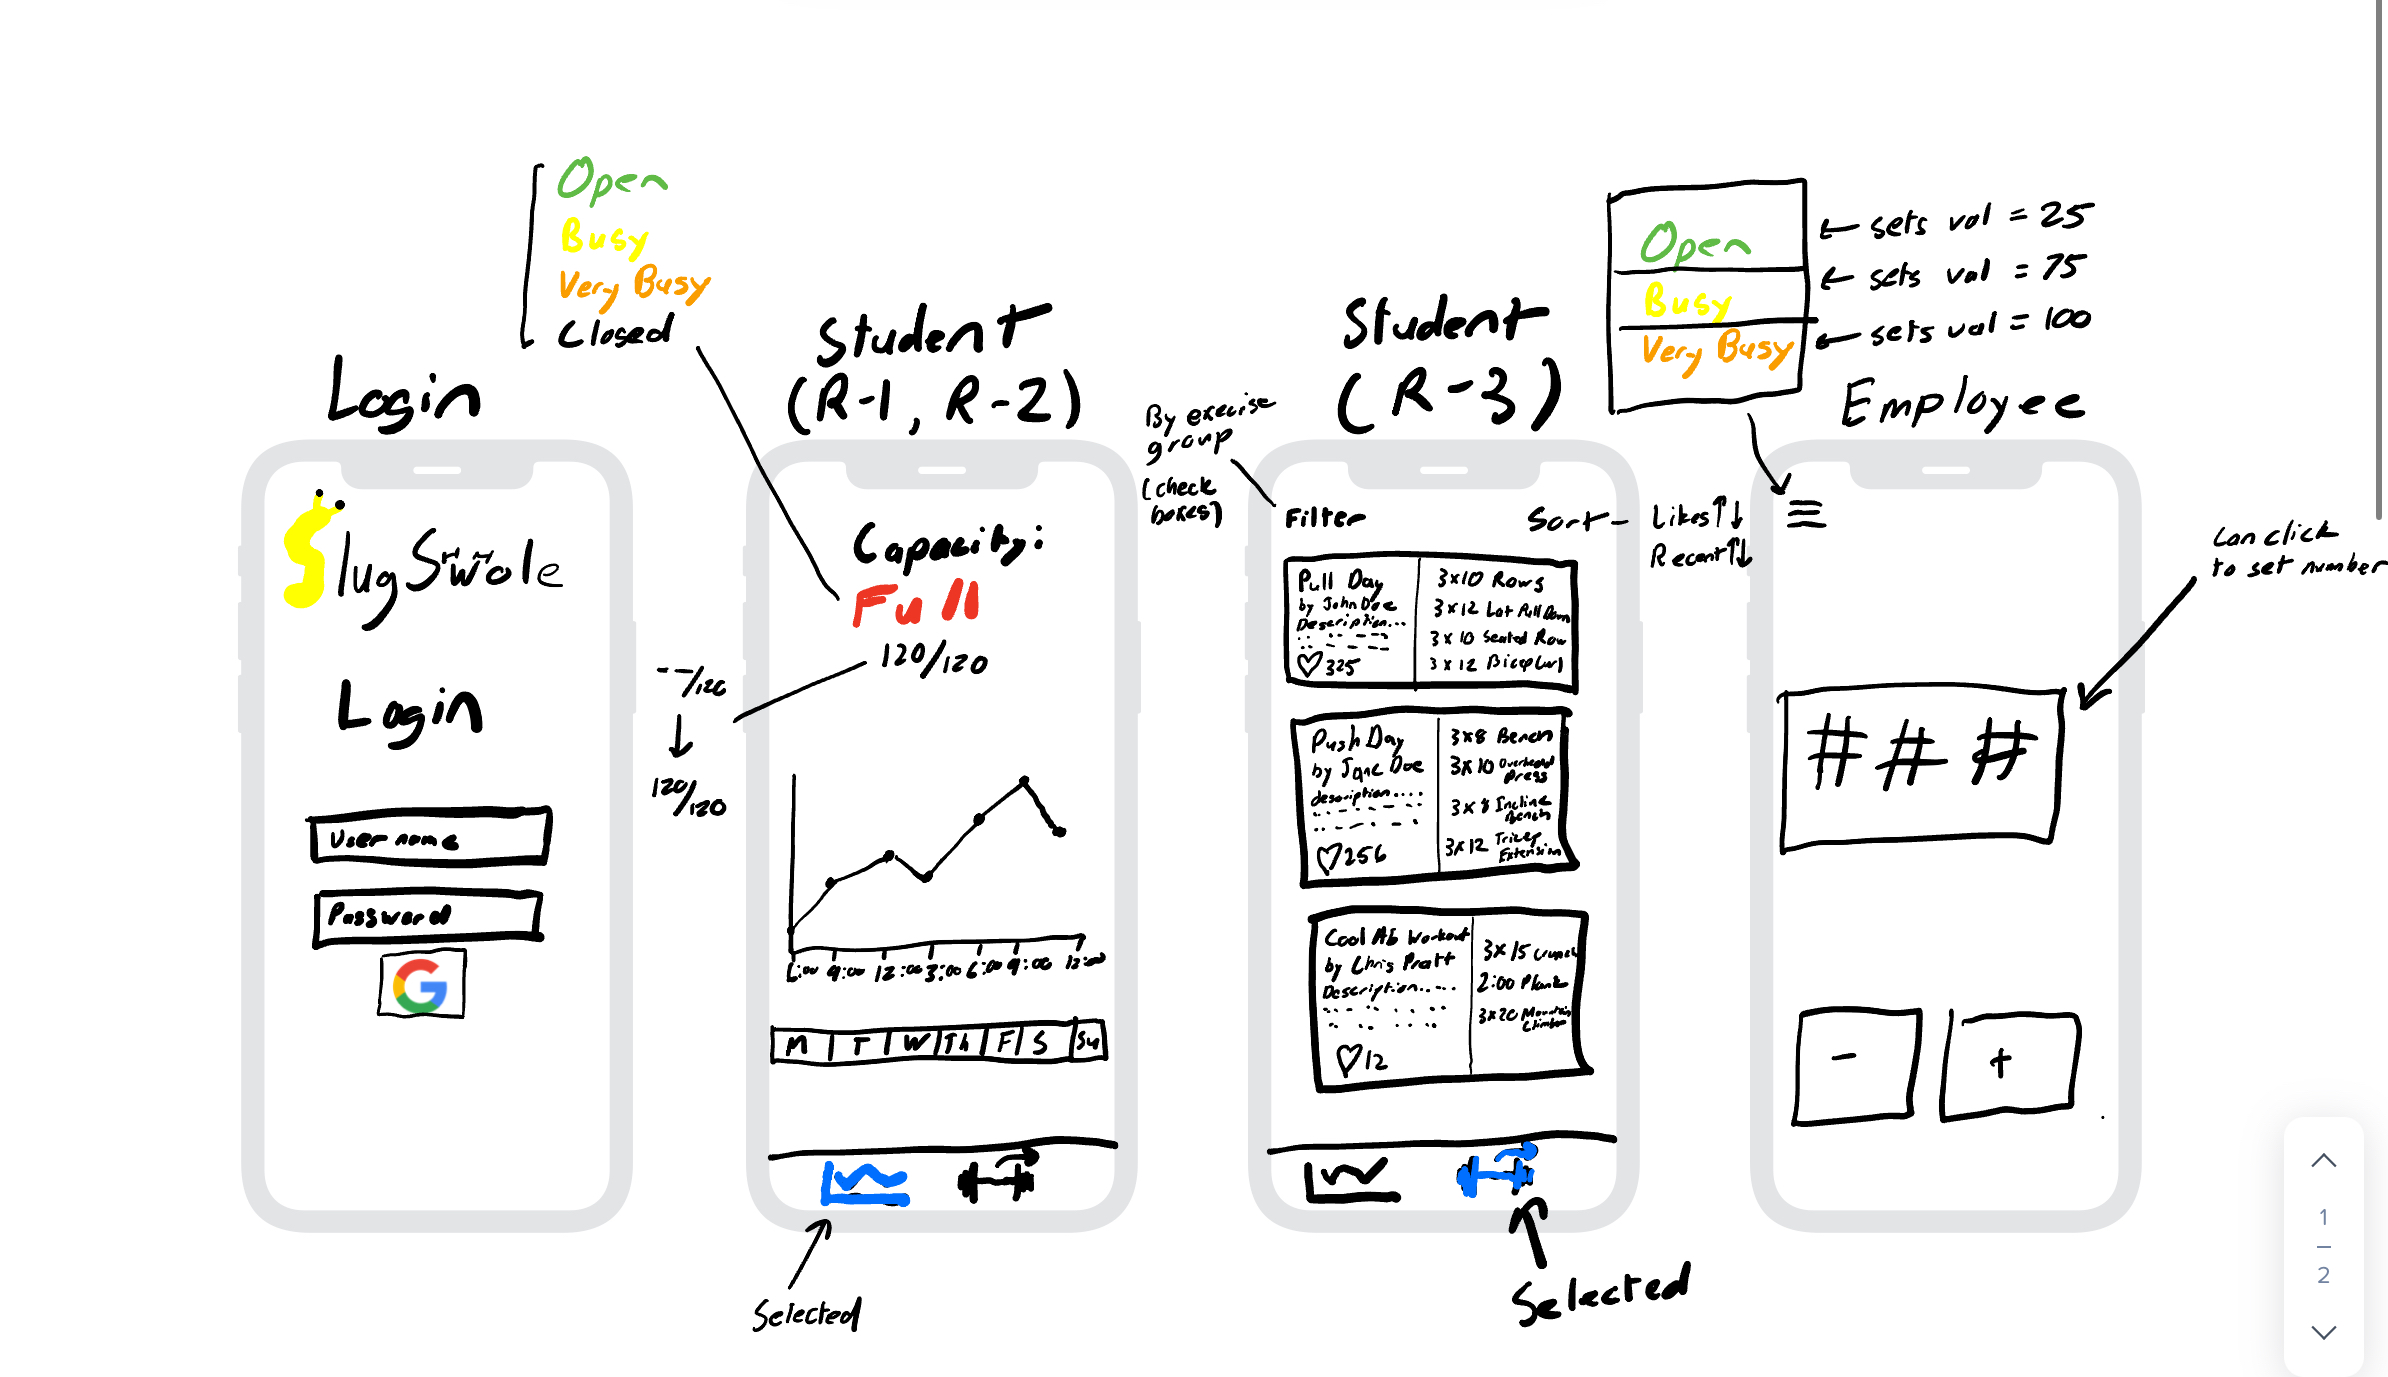 Open
Busy
Very Busy
Closed
Login
SlugSwole
Login
Username
Password
Student
(R-1, R-2)
Capacity:
Full
120/120
--/120
120/120
6:00 9:00 12:00 3:00 6:00 9:00 12:00
M T W Th F S Su
Selected
Student
(R-3)
By execise
group
(check
boxes)
Filter
Sort-
Likes↑↓
Recent↑↓
Pull Day
by John Doe
Description...
♡ 325
3x10 Rows
3x12 Lat Pull Down
3x10 Seated Row
3x12 Bicep Curl
Push Day
by Jane Doe
description....
♡ 256
3x8 Bench
3x10 Overhead
Press
3x8 Incline
Bench
3x12 Tricep
Extension
Cool Ab Workout
by Chris Pratt
Description.....
♡ 12
3x15 Crunch
2:00 Plank
3x20 Mountain
Climber
Selected
Open
Busy
Very Busy
← sets val = 25
← sets val = 75
← sets val = 100
Employee
Can click
to set number
# # #
- +
1
–
2